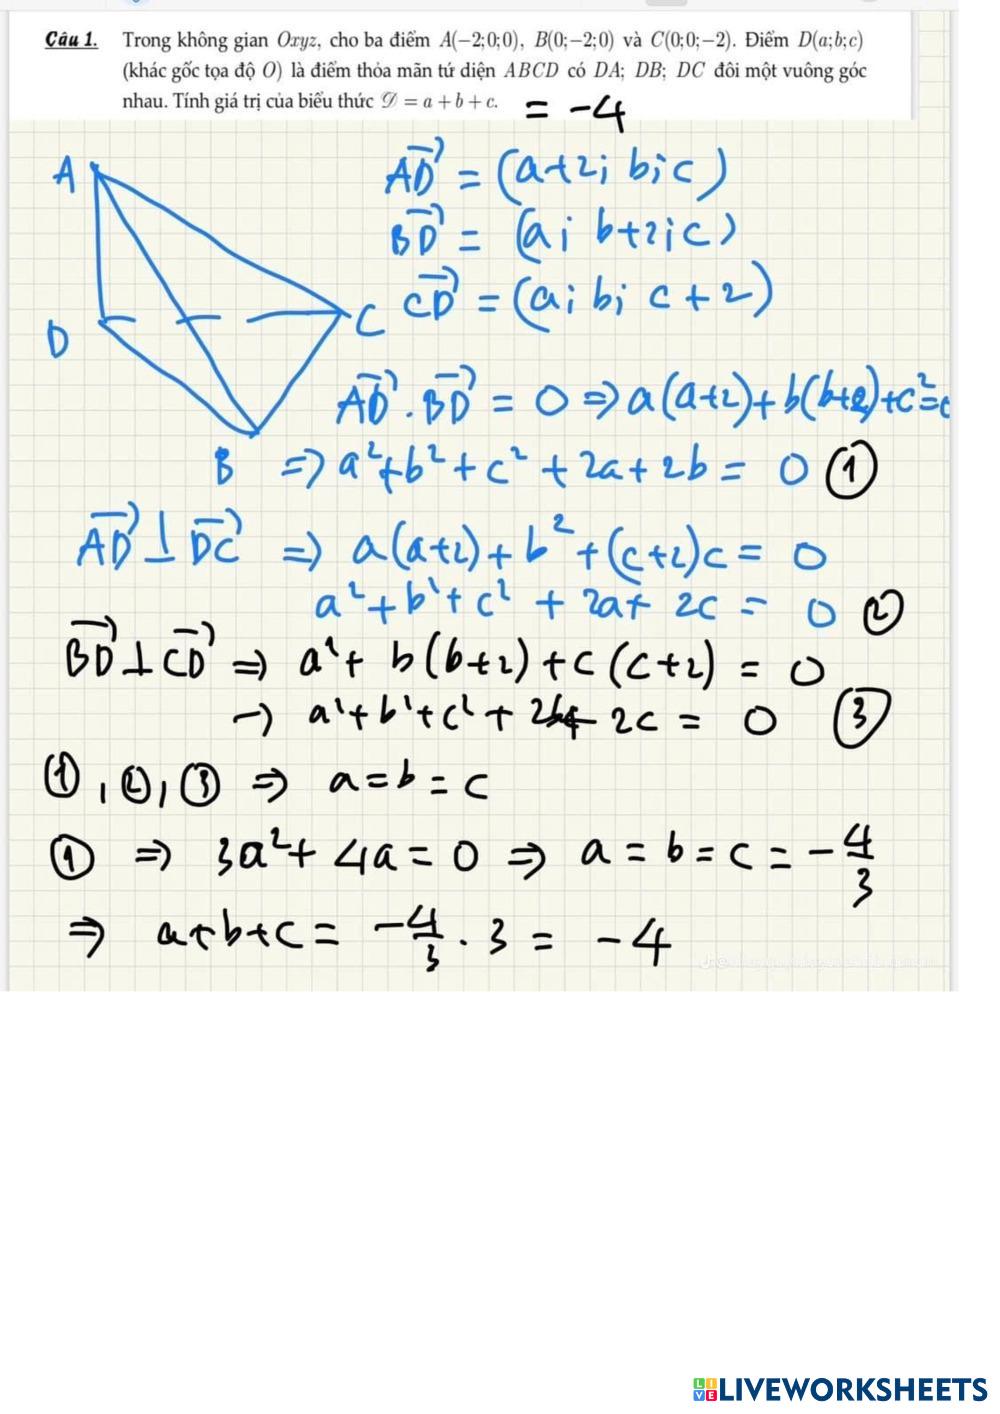 Câu 1. Trong không gian Oxyz, cho ba điểm A(−2;0;0), B(0;−2;0) và C(0;0;−2). Điểm D(a;b;c)
(khác gốc tọa độ O) là điểm thỏa mãn tứ diện ABCD có DA; DB; DC đôi một vuông góc
nhau. Tính giá trị của biểu thức 𝒟 = a + b + c. = −4
A
D
C
B
AD⃗ = (a+2; b; c)
BD⃗ = (a; b+2; c)
CD⃗ = (a; b; c + 2)
AD⃗ . BD⃗ = 0 ⇒ a(a+2)+ b(b+2)+c²=0
⇒ a²+b²+c²+2a+2b = 0 ①
AD⃗ ⊥ DC⃗ ⇒ a(a+2)+ b² +(c+2)c = 0
a²+b²+c² + 2a+ 2c = 0 ②
BD⃗ ⊥ CD⃗ ⇒ a²+ b(b+2)+c(c+2) = 0
→ a²+b²+c²+ 2b+ 2c = 0 ③
①, ②, ③ ⇒ a=b=c
① ⇒ 3a²+ 4a = 0 ⇒ a = b = c = −4/3
⇒ a+b+c = −4/3 . 3 = −4
LIVEWORKSHEETS